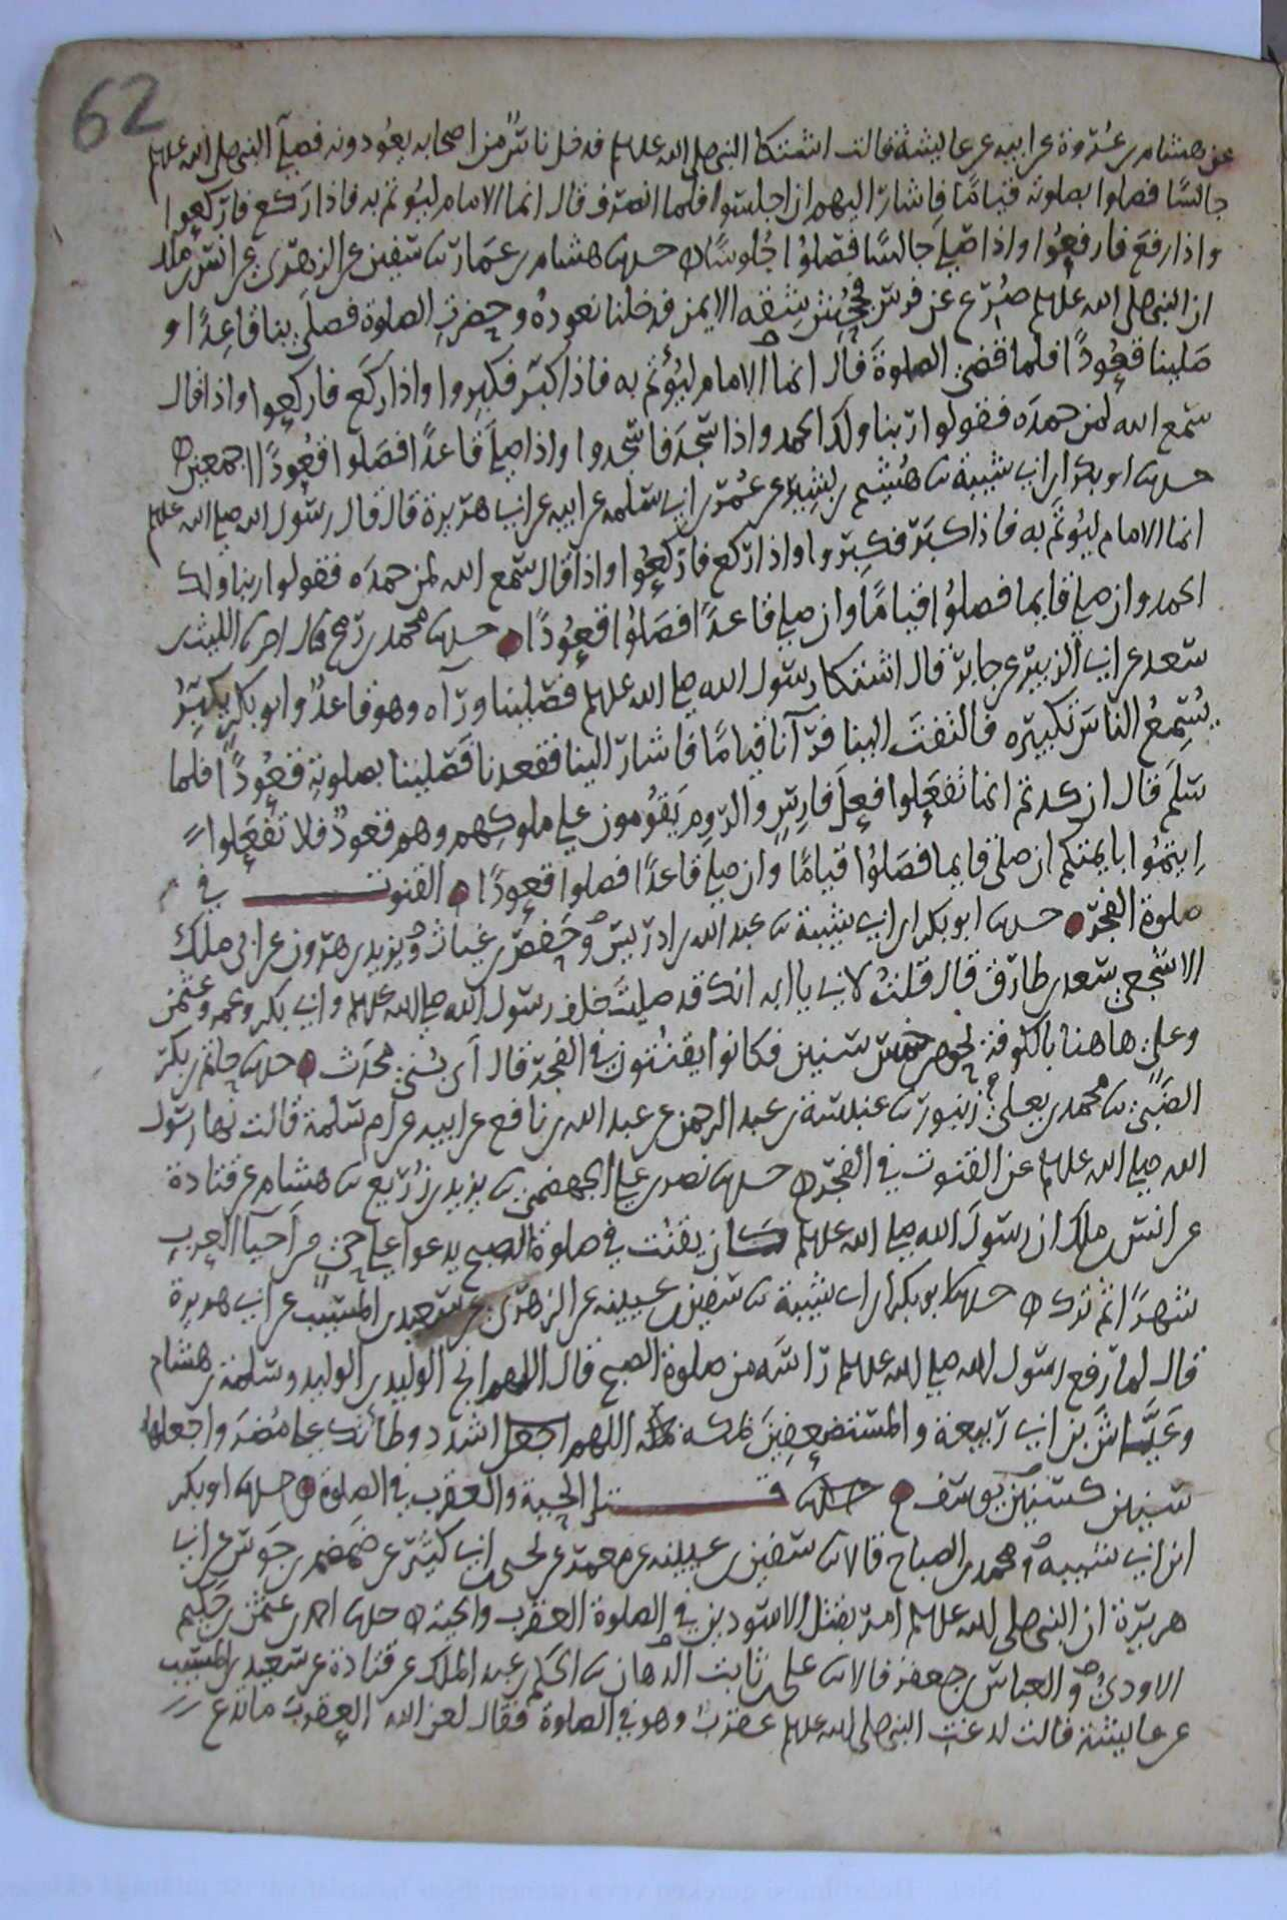 62
عن هشام بن عروة عن ابيه عن عايشة قالت اشتكا النبى صلى الله عليه وسلم فدخل ناس من اصحابه يعودونه فصلى النبى صلى الله عليه وسلم
جالسا فصلوا بصلوته قياما فاشار اليهم ان اجلسوا فلما انصرف قال انما الامام ليؤتم به فاذا ركع فاركعوا
واذا رفع فارفعوا واذا صلى جالسا فصلوا جلوسا ه حدثنا هشام بن عمار ثنا سفين عن الزهرى عن انس بن ملك
ان النبى صلى الله عليه وسلم صرع عن فرس فجحش شقه الايمن فدخلنا نعوده وحضرت الصلوة فصلى بنا قاعدا و
صلينا قعودا فلما قضى الصلوة قال انما الامام ليؤتم به فاذا كبر فكبروا واذا ركع فاركعوا واذا قال
سمع الله لمن حمده فقولوا ربنا ولك الحمد واذا سجد فاسجدوا واذا صلى قاعدا فصلوا قعودا اجمعين ه
حدثنا ابو بكر ابن ابى شيبة ثنا هشيم بن بشير عن عمر بن ابى سلمه عن ابيه عن ابى هريرة قال قال رسول الله صلى الله عليه وسلم
انما الامام ليؤتم به فاذا كبر فكبروا واذا ركع فاركعوا واذا قال سمع الله لمن حمده فقولوا ربنا ولك
الحمد وان صلى قايما فصلوا قياما وان صلى قاعدا فصلوا قعودا حدثنا محمد بن رمح قال اخبرنا الليث بن
سعد عن ابى الزبير عن جابر قال اشتكا رسول الله صلى الله عليه وسلم فصلينا وراه وهو قاعد وابو بكر يكبر
يسمع الناس تكبيره فالتفت الينا فرآنا قياما فاشار الينا فقعدنا فصلينا بصلوته قعودا فلما
سلم قال ان كدتم انما تفعلوا فعل فارس والروم يقومون على ملوكهم وهم قعود فلا تفعلوا
ايتموا بايمتكم ان صلى قايما فصلوا قياما وان صلى قاعدا فصلوا قعودا القنوت في
صلوة الفجر حدثنا ابو بكر ابن ابى شيبة ثنا عبد الله بن ادريس وحفص بن غياث ويزيد بن هرون عن ابى ملك
الاشجعى سعد بن طارق قال قلت لابى يا ابه انك قد صليت خلف رسول الله صلى الله عليه وسلم وابى بكر وعمر وعثمن
وعلى هاهنا بالكوفة نحو من خمس سنين فكانوا يقنتون في الفجر قال اى بنى محدث حدثنا حاتم بن بكر
الضبى ثنا محمد بن يعلى زنبور ثنا عنبسة بن عبد الرحمن عن عبد الله بن نافع عن ابيه عن ام سلمة قالت نها رسول
الله صلى الله عليه وسلم عن القنوت في الفجر ه حدثنا نصر بن على الجهضمى ثنا يزيد بن زريع ثنا هشام عن قتادة
عن انس بن ملك ان رسول الله صلى الله عليه وسلم كان يقنت في صلوة الصبح يدعوا على حى من احيا العرب
شهرا ثم ترك ه حدثنا ابو بكر ابن ابى شيبة ثنا سفين بن عيينه عن الزهرى عن سعيد بن المسيب عن ابى هريرة
قال لما رفع رسول الله صلى الله عليه وسلم راسه من صلوة الصبح قال اللهم انج الوليد بن الوليد وسلمة بن هشام
وعياش بن ابى ربيعة والمستضعفين بمكه اللهم اشدد وطأتك على مضر واجعلها
سنين كسنين يوسف قتل الحية والعقرب في الصلوة حدثنا ابو بكر
ابن ابى شيبه ومحمد بن الصباح قالا ثنا سفين بن عيينه عن معمر عن يحيى بن ابى كثير عن ضمضم بن جوس عن ابى
هريرة ان النبى صلى الله عليه وسلم امر بقتل الاسودين في الصلوة العقرب والحية ه حدثنا احمد بن عثمن بن حكيم
الاودى والعباس بن جعفر قالا ثنا على بن ثابت الدهان ثنا الحكم بن عبد الملك عن قتادة عن سعيد بن المسيب
عن عايشة قالت لدغت النبى صلى الله عليه وسلم عقرب وهو في الصلوة فقال لعن الله العقرب ما تدع